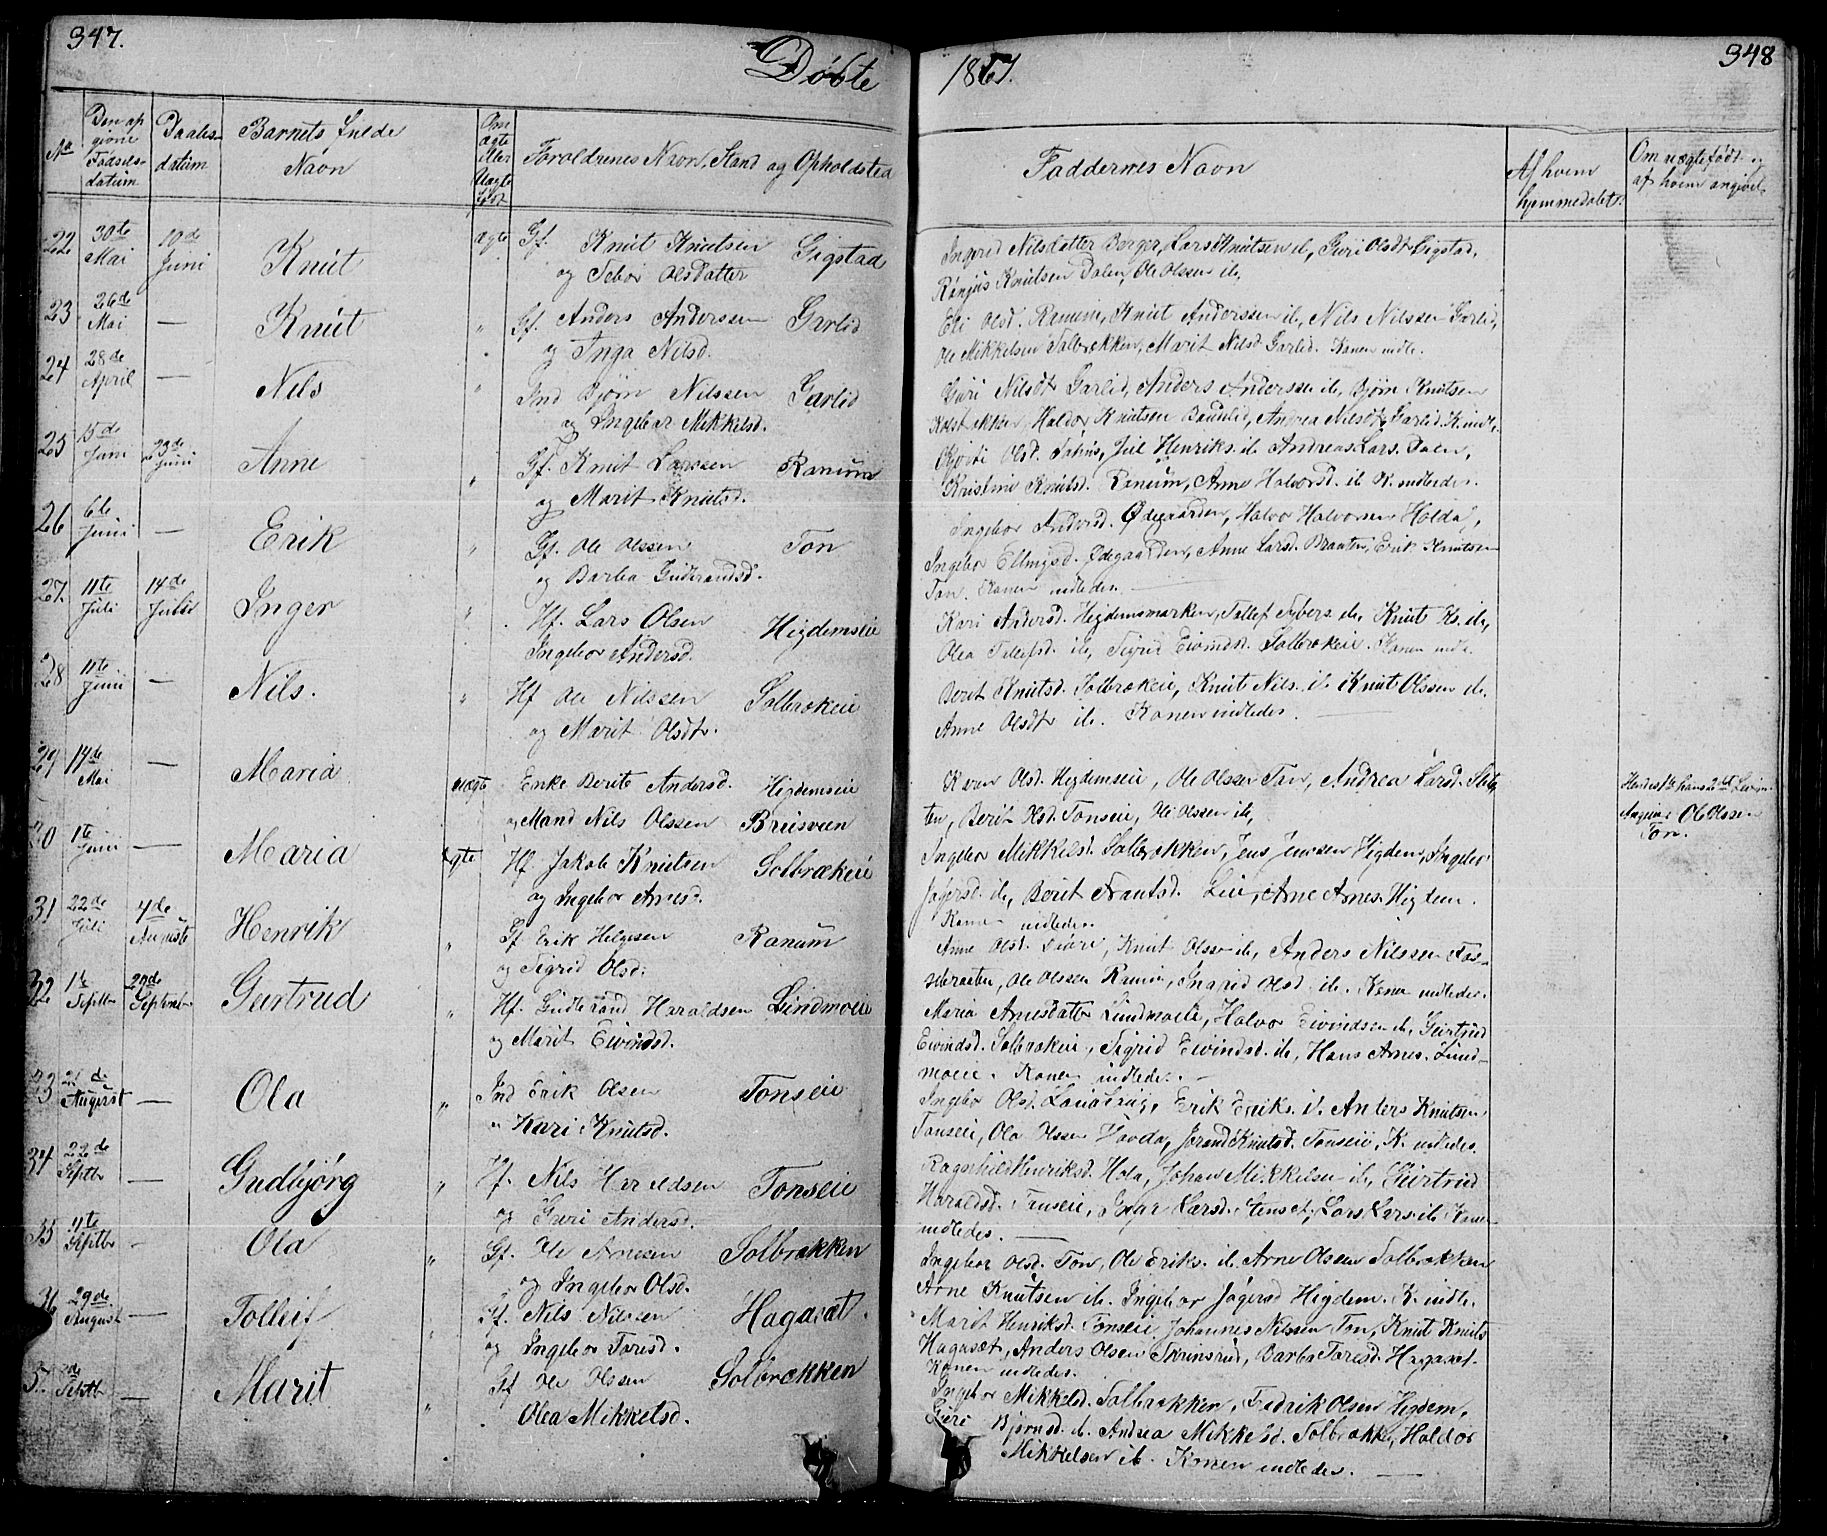 347.
Døbte
1867.
348
No
Den opgivne Fødselsdatum
Daabsdatum
Barnets fulde Navn
Om ægte eller Uægte født
Forældrenes Navn, Stand og Opholdsted
Faddernes Navn
Af hvem hjemmedøbt.
Om uægte født og af hvem angivet
22 30te Mai 10de Juni Knut ægte Gf. Knut Knutsen Gigstad
og Sebor Olsdatter
Ingerid Nilsdatter Berger, Lars Knutsen ib, Guri Olsdtr Gigstad,
Ranjus Knutsen Dalen, Ole Olssen ib,
23 26de Mai — Knut " Gf. Anders Anderssen Garlid
og Inga Nilsd.
Eli Olsd. Ranum, Knut Anderssen ib, Nils Nilssen Garlid,
Ole Mikkelsen Solbrækken, Marit Nilsd Garlid. Konen indle.
24 28de April — Nils " Ind Bjørn Nilssen Garlid
og Ingebor Mikkelsd.
Guri Nilsdt Garlid, Anders Anderssen ib, Bjørn Knutsen
Halvor Knutsen Baunlid, Andrea Nilsdt Garlid. K. indl.
25 15de Juni 23de Juni Anne " Gf. Knut Larssen Ranum
og Marit Knutsd.
Olsd. Juel Henriks. ib Andreas Lars. Dalen,
Kristine Knutsd. Ranum, Anne Halvorsd. ib K. indledes.
26 6te Juni — Erik " Gf. Ole Olssen Ton
og Barbra Gudbrandsd.
Ingebor Andersd. Ødegaarden, Halvor Halvorsen Holda,
Ingebor Ellingsd. Ødegaarden, Anne Larsd. Braaten, Erik Knutsen
Ton. Konen indledes. —
27. 11te Juli 14de Juli Inger " Hf. Lars Olsen Higdemseie
Ingebor Andersd.
Kari Andersd. Higdemsmarken, Tollef Sybers. ib, Knut Els. ib,
Olea Tollefsd. ib, Sigrid Eivindsd. Solbrækeie. Konen indle.
28 11te Juni — Nils. " Hf Ole Nilssen Solbrækeie
og Marit Olsdtr.
Berit Knutsd. Solbrækeie, Knut Nils. ib Knut Olssen ib.
Anne Olsdtr ib. Konen indledes. —
29 14de Mai — Maria uægte Enke Berite Andersd. Higdemseie
og Mand Nils Olssen Bruisveen
Karen Olsd. Higdemseie, Ole Olssen Ton, Andrea Larsd.
Berit Olsd. Tonseie, Ole Olssen ib,
Hendes 1ste hans 2det Leier-
Angivet Ole Olssen
Ton.
30 1te Juni — Maria ægte Hf Jakob Knutsen Solbrækeie
og Ingebor Arnesd.
Ingebor Mikkelsd. Solbrækken, Jens Jenssen Higdem, Ingebor
Jøgersd. ib, Berit Frantsd. Lie, Arne Arnes. Higdem.
Konen indledes.
31 22de Juli 4de Auguste Henrik " Gf Erik Helgesen Ranum
og Sigrid Olsd.
Anne Olsd. Knut Olssen ib, Anders Nilssen Fos-
sebraaten, Ole Olssen Ranum, Ingrid Olsd. ib. Konen indledes.
32 1te Septbr 22de Septembr Gertrud " Hf. Gudbrand Haraldsen Lindmoeie
og Marit Eivindsd.
Maria Arnesdatter Lindmoeie, Halvor Eivindsen ib, Geirtrud
Eivindsd. Solbrækeie, Sigrid Eivindsd. ib, Hans Arnes. Lind-
moeie. Konen indledes. —
33 August — Ola " Ind Erik Olsen Tonseie
" Kari Knutsd.
Ingebor Olsd. Erik Eriks. ib. Anders Knutsen
Tonseie, Ole Olssen Hovda, Jorand Knutsd. Tonseie, K. indledes.
34 22de Septbr — Gudbjørg " Hf. Nils Haraldsen Tonseie
og Guri Andersd.
Ragnhild Henriksd. Hola, Johan Mikkelsen ib, Geirtrud
Haraldsd. Tonseie, Inger Larsd. Stenset, Lars Lars. ib Konen
indledes. —
35 4te Septbr — Ola " Gf. Ole Arnesen Solbrækken
og Ingebor Olsd.
Ingebor Olsd. Ton, Ole Eriks. ib. Arne Olssen Solbrækken
Arne Knutsen ib. Ingebor Jøgersd Higdem. K. indle.
36 29de August — Tolleif " Gf. Nils Nilssen Hagaset.
og Ingebor Toresd.
Marit Henriksd. Tonseie, Johannes Nilssen Ton, Knut Knuts
Hagaset, Anders Olsen Skrinsrud, Barbro Toresd. Hagaset.
Konen indledes.
37 Septbr — Marit " Gf Ole Olssen Solbrækken
Olea Mikkelsd.
Ingebor Mikkelsd. Solbrækken, Fredrik Olsen Higdem,
Guri Bjørnsd. ib. Andrea Mikkelsd. Solbrække, Haldor
Mikkelsen ib. Konen indledes. —